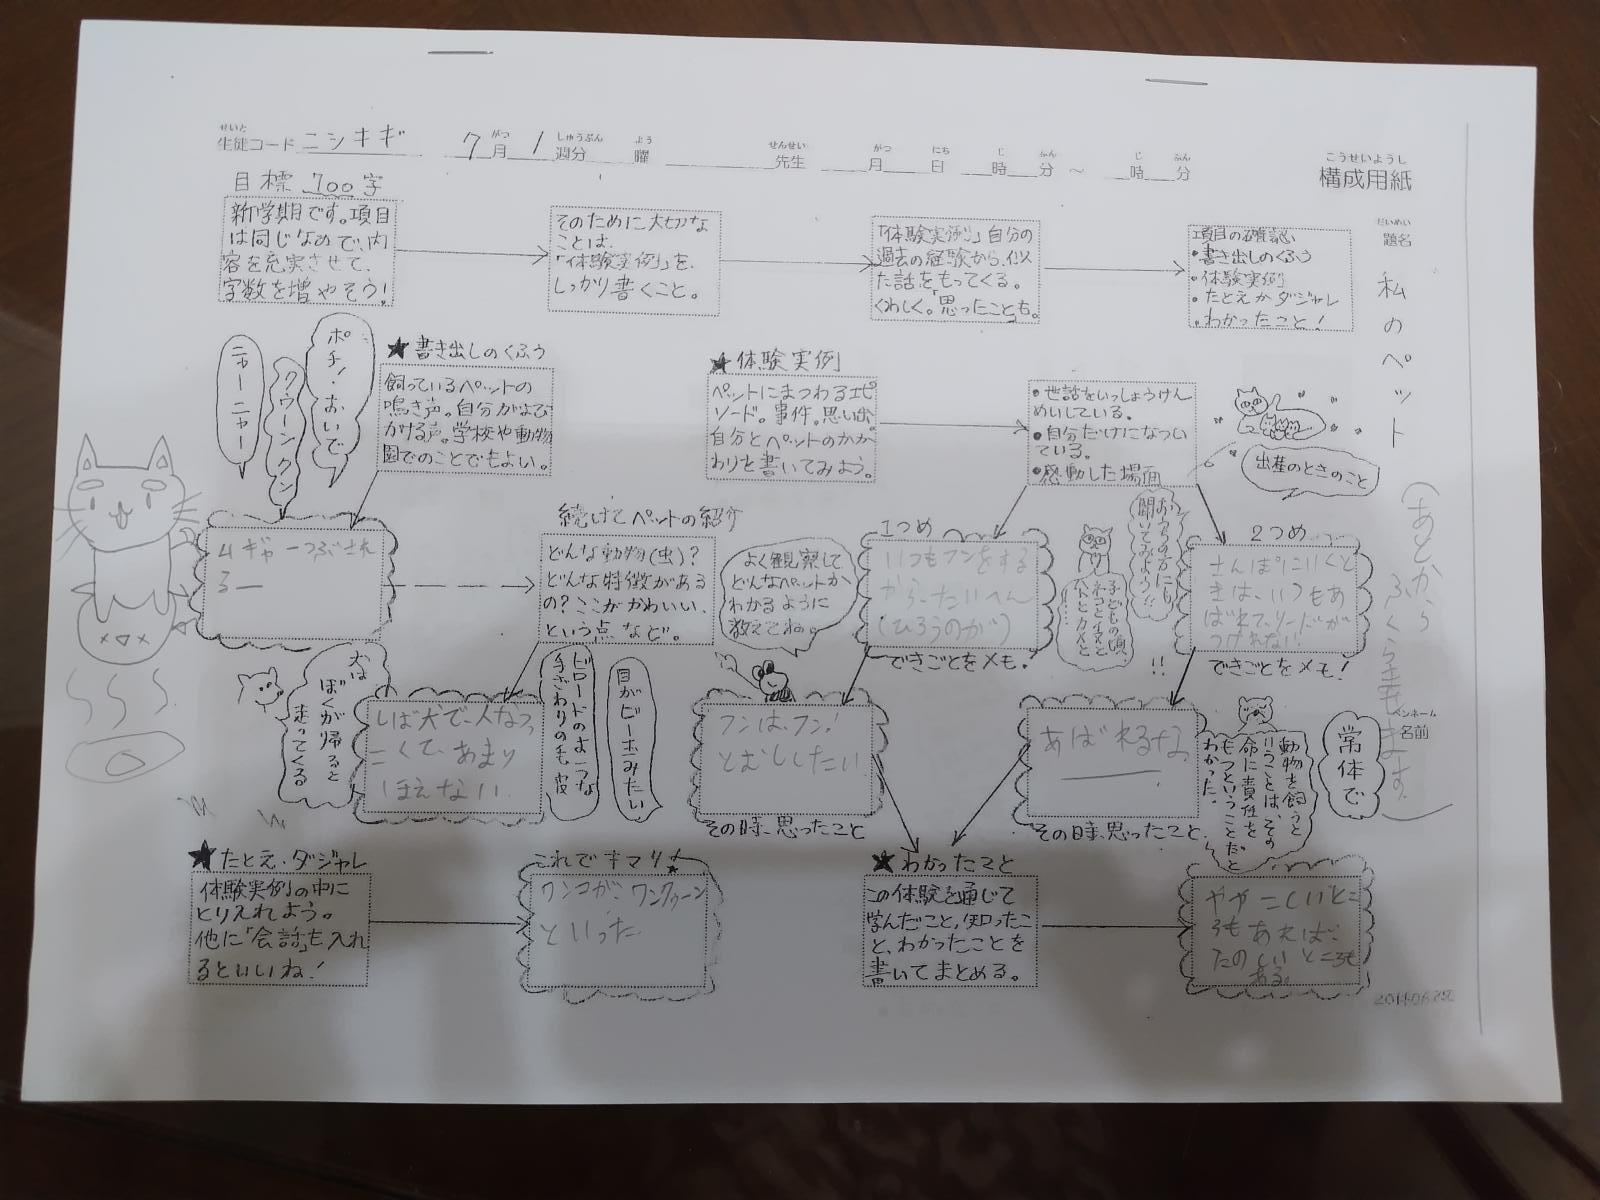 せいと がつ しゅうぶん よう せんせい がつ にち じ ふん じ ふん
生徒コード ニシキギ 7月 1週分 曜 先生 月 日 時 分 ~ 時 分
こうせいようし
構成用紙
目標 700字
新学期です。項目
は同じなので、内
容を充実させて、
字数を増やそう!
そのために大切な
ことは、
「体験実例」を、
しっかり書くこと。
「体験実例」自分の
過去の経験から、似
た話をもってくる。
くわしく。「思ったこと」も。
項目の確認
・書き出しのくふう
・体験実例
・たとえかダジャレ
・わかったこと!
だいめい
題名
私のペット
(あとから
ふくらませます。)
ペンネーム
名前
常体で
ポチ!おいで
クウーンクン
ニャーニャー
★書き出しのくふう
飼っているペットの
鳴き声。自分がよび
かける声。学校や動物
園でのことでもよい。
★体験実例
ペットにまつわるエピ
ソード。事件。思い出。
自分とペットのかか
わりを書いてみよう。
・世話をいっしょうけん
めいしている。
・自分だけになつい
ている。
・感動した場面
出産のときのこと
おうちの方にも
聞いてみよう!!
子どもの頃、
ネコとイヌと
ハトとカメと
!!
ムギャーつぶされ
るー
続けてペットの紹介
どんな動物(虫)?
どんな特徴がある
の?ここがかわいい、
という点など。
よく観察して
どんなペットか
わかるように
教えてね。
1つめ
いつもフンをする
から、たいへん
(ひろうのが)
できごとをメモ!
2つめ
さんぽにいくと
きは、いつもあ
ばれて、リードが
つけれない!
できごとをメモ!
犬は
ぼくが帰ると
走ってくる
しば犬で、人なつ
こくて、あまり
ほえない
ビロードのような
手ざわりの毛皮
目がビー玉みたい
フンは、フン!
とむししたい
その時、思ったこと
あばれるな
その時、思ったこと
動物を飼うと
いうことは、その
命に責任を
もつということだと
わかった。
★たとえ・ダジャレ
体験実例の中に
とりいれよう。
他に「会話」も入れ
るといいね!
これでキマリ!
ワンコが、ワンクゥーン
といった
★わかったこと
この体験を通じて
学んだこと、知ったこ
と、わかったことを
書いてまとめる。
ややこしいとこ
ろもあれば、
たのしいところも
ある。